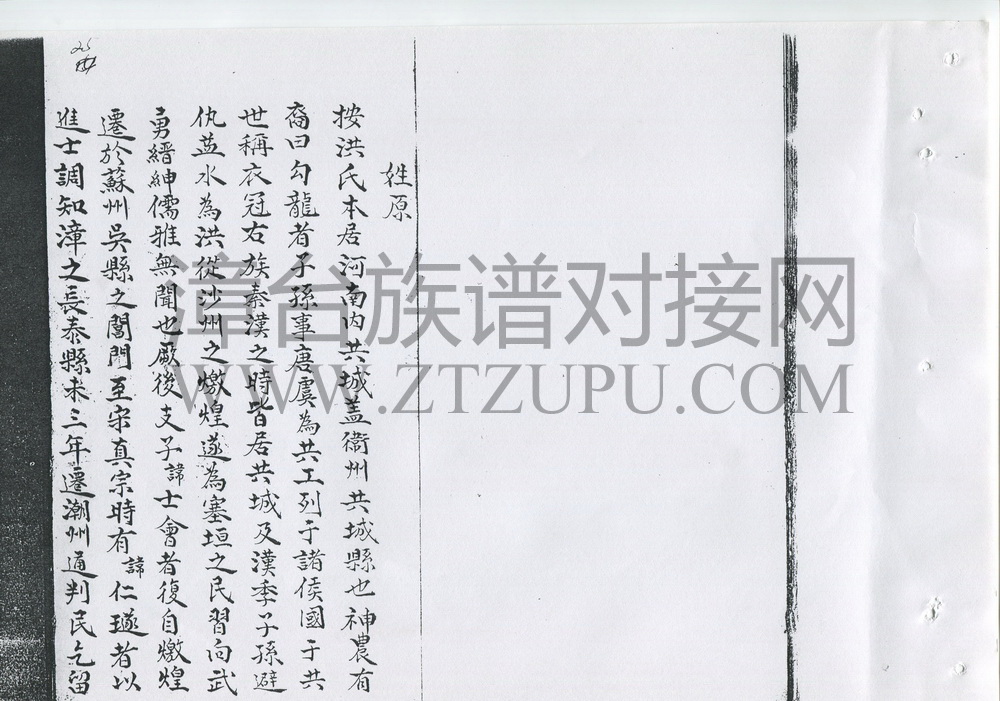 姓原
按洪氏本居河南内共城盖衛州共城縣也神農有
裔曰勾龍者子孫事唐虞為共工列于諸侯國于共
世稱衣冠右族秦漢之時皆居共城及漢季子孫避
仇益水為洪從沙州之燉煌遂為塞垣之民習向武
勇縉紳儒雅無聞也厥後支子諱士會者復自燉煌
遷於蘇州吳縣之閶門至宋真宗時有諱仁璲者以
進士調知漳之長泰縣未三年遷潮州通判民乞留
漳台族谱对接网
WWW.ZTZUPU.COM
25